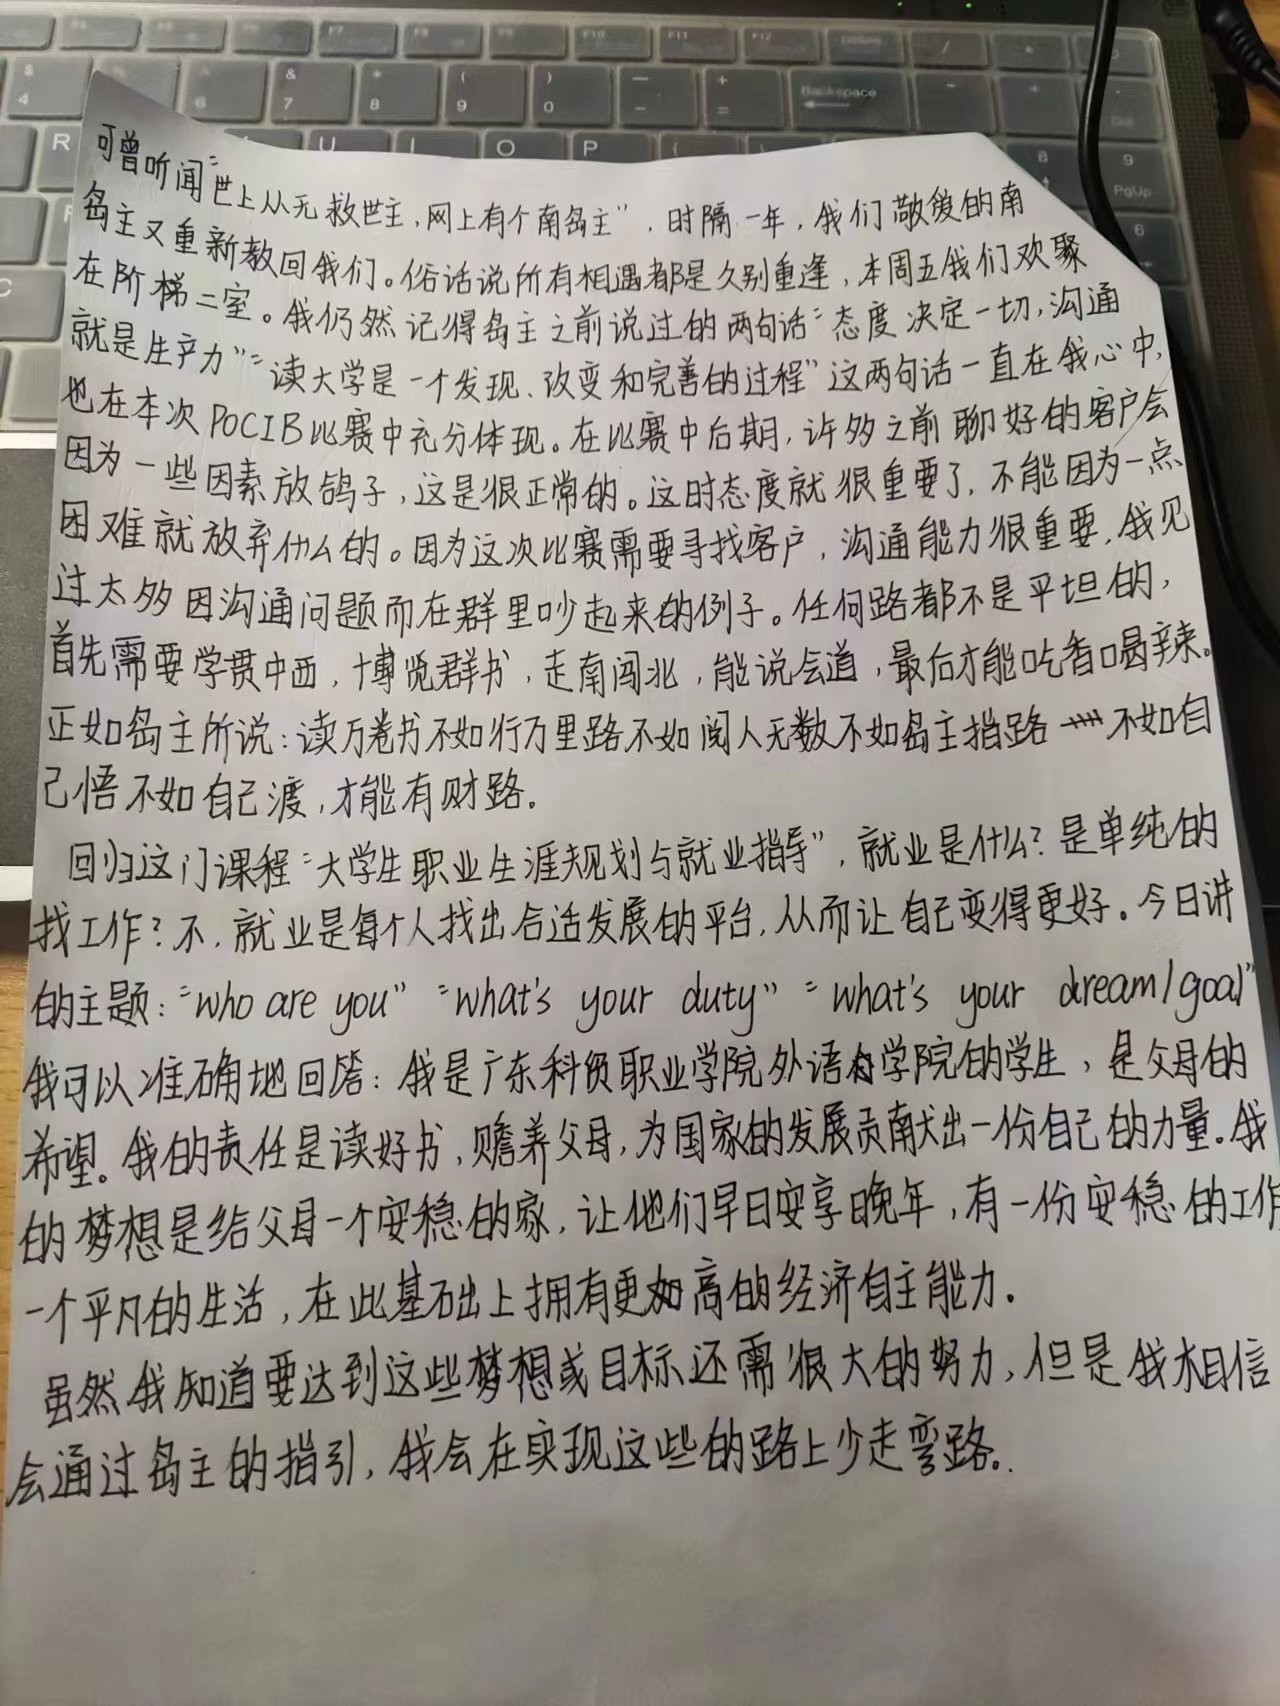 F10 F11 F12 Delete
& * ( ) — +
4 6 7 8 9 0 - = Backspace
R U I O P
8 9 PgUp
6
可曾听闻“世上从无救世主，网上有个南岛主”，时隔一年，我们敬爱的南
岛主又重新教回我们。俗话说所有相遇都是久别重逢，本周五我们欢聚
在阶梯二室。我仍然记得岛主之前说过的两句话“态度决定一切，沟通
就是生产力”“读大学是一个发现、改变和完善的过程”这两句话一直在我心中，
也在本次POCIB比赛中充分体现。在比赛中后期，许多之前聊好的客户会
因为一些因素放鸽子，这是很正常的。这时态度就很重要了，不能因为一点
困难就放弃什么的。因为这次比赛需要寻找客户，沟通能力很重要，我见
过太多因沟通问题而在群里吵起来的例子。任何路都不是平坦的，
首先需要学贯中西，博览群书，走南闯北，能说会道，最后才能吃香喝辣。
正如岛主所说：读万卷书不如行万里路不如阅人无数不如岛主指路不如自
己悟不如自己渡，才能有财路。
回归这门课程“大学生职业生涯规划与就业指导”，就业是什么？是单纯的
找工作？不，就业是每个人找出合适发展的平台，从而让自己变得更好。今日讲
的主题：“who are you” “what's your duty” “what's your dream/goal”
我可以准确地回答：我是广东科贸职业学院外语学院的学生，是父母的
希望。我的责任是读好书，赡养父母，为国家的发展贡献出一份自己的力量。我
的梦想是给父母一个安稳的家，让他们早日安享晚年，有一份安稳的工作
一个平凡的生活，在此基础上拥有更加高的经济自主能力。
虽然我知道要达到这些梦想或目标还需很大的努力，但是我相信
会通过岛主的指引，我会在实现这些的路上少走弯路。